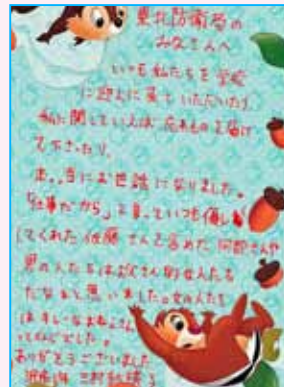 東北防衛局の
みなさんへ
いつも私たちを学校
に迎えに来ていただいたり、
私に関していえば、忘れものを届け
て下さったり、
本当にお世話になりました。
「仕事だから」と言っていつも優しく
してくれた佐藤さんを含めた阿部さんや
男の人たちはお父さん的な人たち
だなぁと思いました。女の人たち
は
さん
ってかんじでした。
ありがとうございました